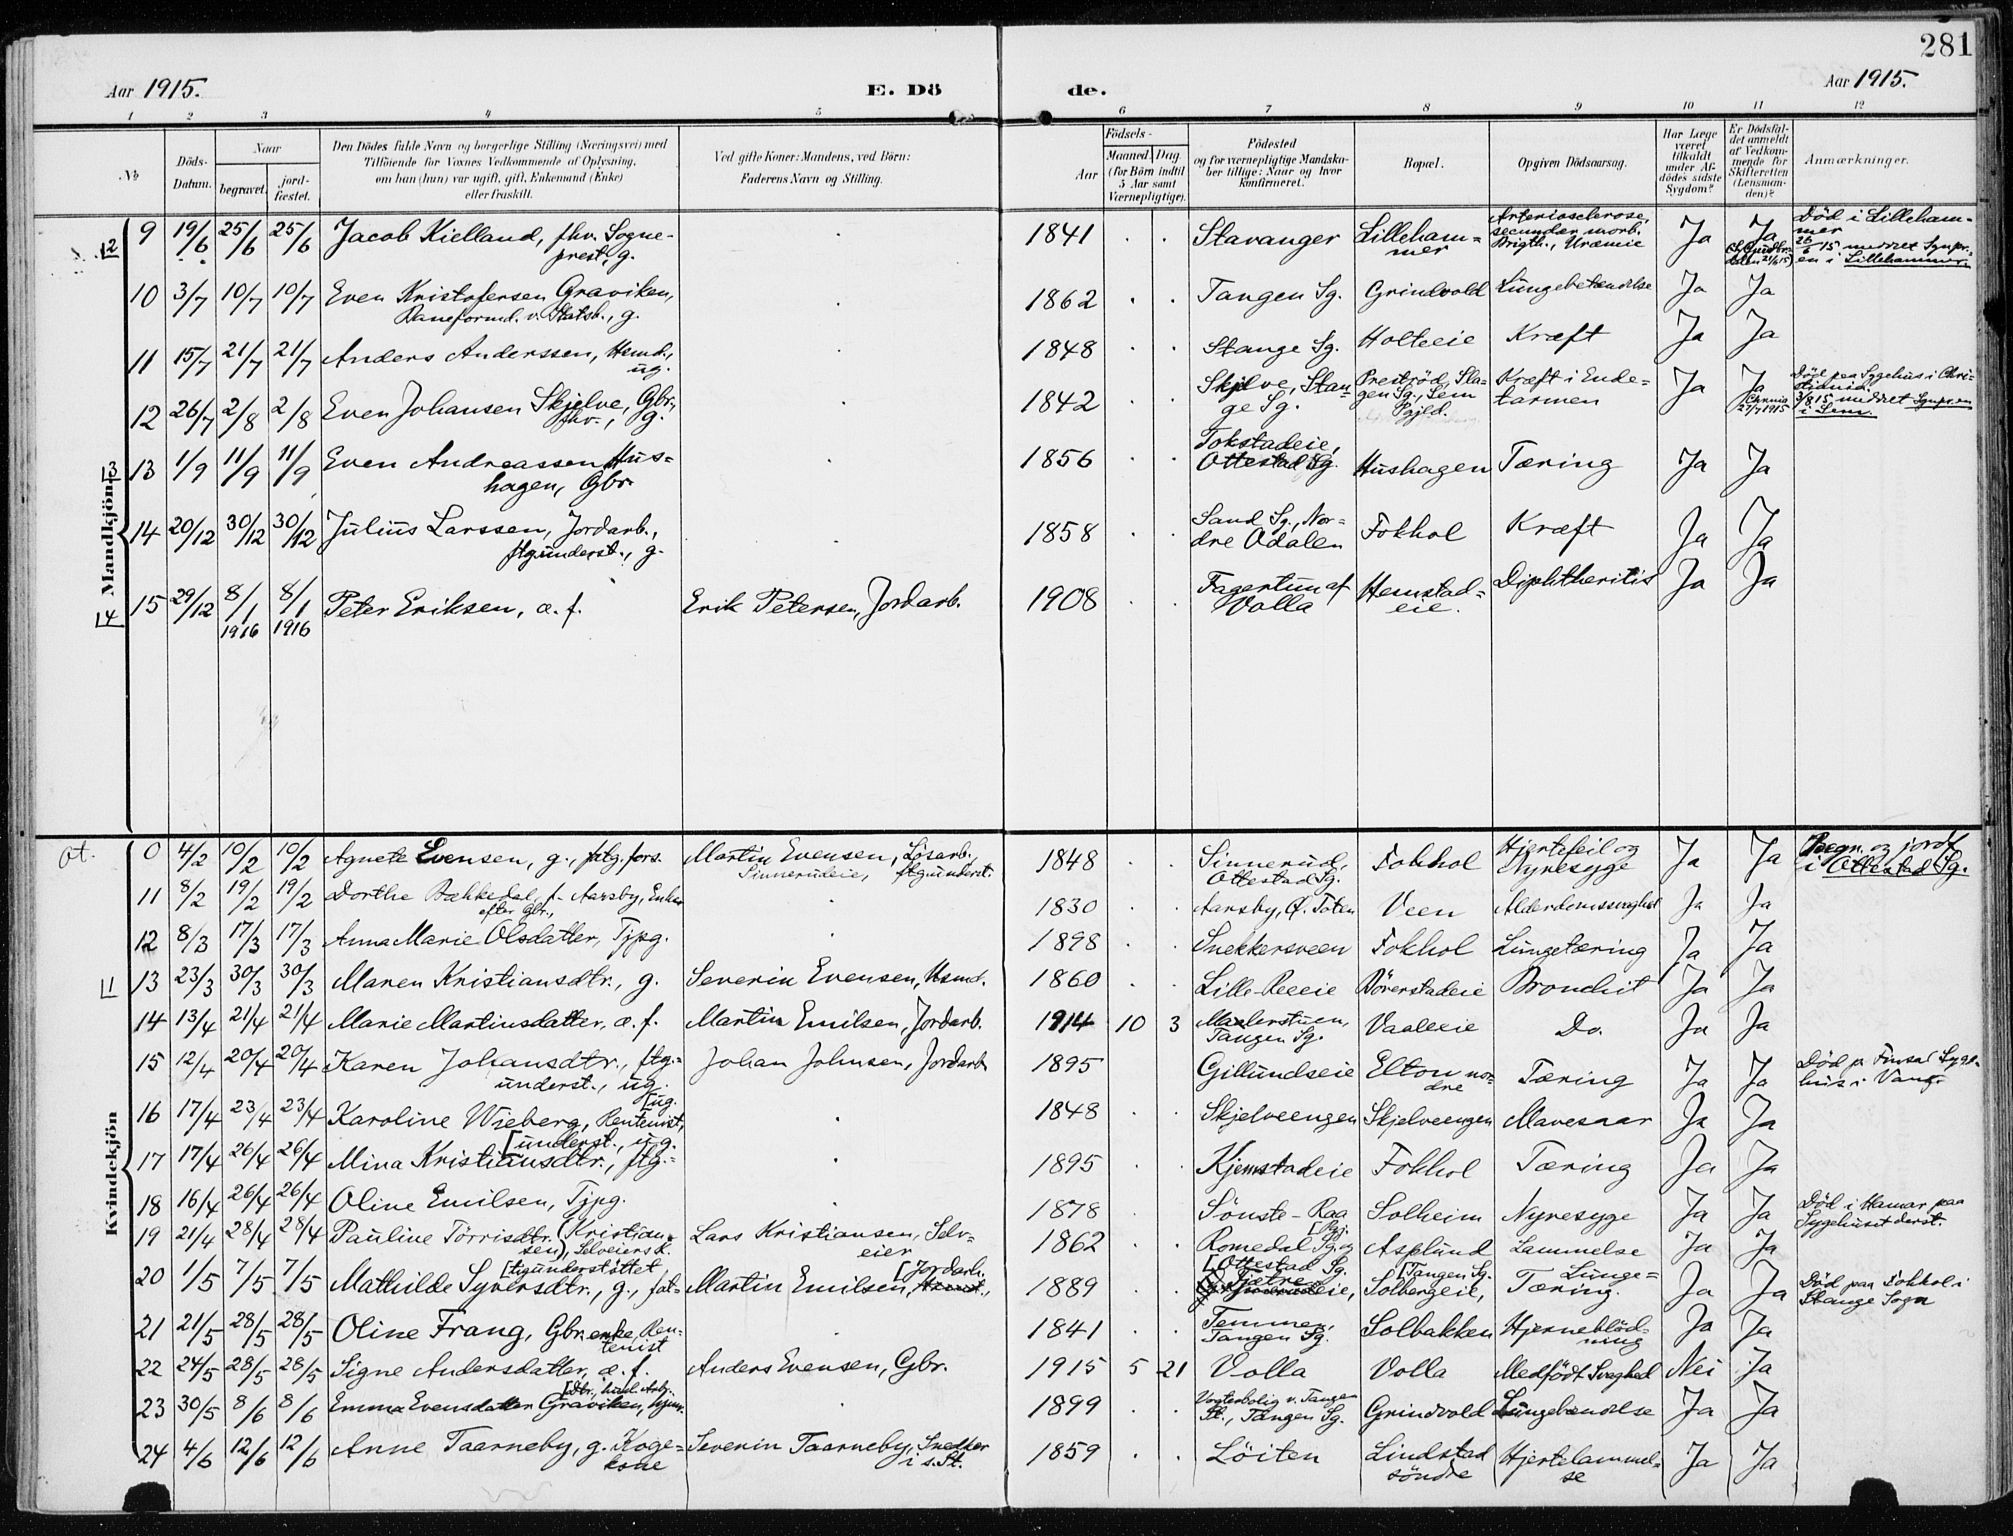 281
Aar 1915. E. Dö de. Aar 1915.
1 2 3 4 5 6 7 8 9 10 11 12
No
Döds-Datum.
Naar
begravet.
jord-fæstet.
Den Dödes fulde Navn og borgerlige Stilling (Næringsvei) med
Tilföiende for Voxnes Vedkommende af Oplysning,
om han (hun) var ugift, gift, Enkemand (Enke)
eller fraskilt.
Ved gifte Koner: Mandens, ved Börn:
Faderens Navn og Stilling.
Födsels-
Aar
Maaned. Dag
(for Börn indtil
5 Aar samt
Værnepligtige).
Födested
og for værnepligtige Mandska-
ber tillige: Naar og hvor
konfirmeret.
Bopæl.
Opgiven Dödsaarsag.
Har Læge
været
tilkaldt
under Af-
dödes sidste
Sygdom?
Er Dödsfal-
det anmeldt
af Vedkom-
mende for
Skifteretten
(Lensman-
den)?
Anmærkninger.
Mandkjön
12
9 19/6 25/6 25/6 Jacob Kielland, fhv. Sogne-
prest, g. 1841 Stavanger Lilleham-
mer Arteriosclerose,
secundær morb.
Brigth., Uræmie Ja Ja Död i Lilleham-
mer
10 3/7 10/7 10/7 Even Kristofersen Graviken,
Baneformd. v. Statsb., g. 1862 Tangen Sg. Grindvold Lungebetændelse Ja Ja
11 15/7 21/7 21/7 Anders Anderssen, Hsmd.,
ug. 1848 Stange Sg. Holteeie Kræft Ja Ja
12 26/7 2/8 2/8 Even Johansen Skjelve, Gbr.,
fhv., g. 1842 Skjelve, Stan-
ge Sg. Prestrød, Sla-
gen Sg., Sem
Pgjld. Kræft i Ende-
tarmen Ja Ja Död paa Sygehus i Chri-
stiania.
13
13 1/9 11/9 11/9 Even Andreassen Hus-
hagen, Gbr. 1856 Tokstadeie,
Ottestad Sg. Hushagen Tæring Ja Ja
14 20/12 30/12 30/12 Julius Larssen, Jordarb.,
ftgunderst., g. 1858 Sand Sg., Nor-
dre Odalen Fokhol Kræft Ja Ja
14
15 29/12 8/1 1916 8/1 1916 Peter Eriksen, æ. f. Erik Petersen, Jordarb. 1908 Fagertun af
Volla Hemstad-
eie. Diphtheritis Ja Ja
Kvindekjön
Ot. 0 4/2 10/2 10/2 Agnete Evensen, g., fatg. fors. Martin Evensen, Lösarb.,
Sinnerudeie, ftgunderst. 1848 Sinnerud,
Ottestad Sg. Fokhol Hjertefeil og
Nyresyge Ja Ja Begr. og jordf.
i Ottestad Sg.
11 8/2 19/2 19/2 Dorthe Bækkedal, f. Aarsby, Enke
efter Gbr., 1830 Aarsby, Ö. Toten Veen Alderdomssvaghed Ja Ja
12 8/3 17/3 17/3 Anna Marie Olsdatter, Tjpg. 1898 Snekkersveen Fokhol Lungetæring Ja Ja
11
13 23/3 30/3 30/3 Maren Kristiansdtr., g. Severin Evensen, Hsmd. 1860 Lille-Reeeie Börerstadeie Bronchit Ja Ja
14 13/4 21/4 21/4 Marie Martinsdatter, æ. f. Martin Emilsen, Jordarb. 1914 10 3 Malerstuen,
Tangen Sg. Vaaleeie Do. Ja Ja
15 12/4 20/4 20/4 Karen Johansdtr., ftg.-
underst., ug. Johan Johnsen, Jordarb. 1895 Gillundseie Elton nor-
dre Tæring Ja Ja Död p. Finsal Syge-
hus i Vang.
16 17/4 23/4 23/4 Karoline Wieberg, Rentenist,
[ug. 1848 Skjelveengen Skjelveengen Mavesaar Ja Ja
17 17/4 26/4 26/4 Mina Kristiansdtr., ftg.-
[underst., ug. 1895 Kjemstadeie Fokhol Tæring Ja Ja
18 16/4 26/4 26/4 Oline Emilsen, Tjpg. 1878 Sönste-Raa Solheim Nyresyge Ja Ja Död i Hamar paa
Sygehuset derst.
19 21/4 28/4 28/4 Pauline Törrisdtr. (Kristian-
sen), Selveiersk. Lars Kristiansen, Selv-
eier 1862 Romedal Sg. og
[Pgj. Asplund Lammelse Ja Ja
20 1/5 7/5 7/5 Mathilde Syversdtr., g., fat-
[tigunderstöttet, Martin Emilsen,
[Jordarb. 1889 [Ottestad Sg.
Solbergeie,
[Tangen Sg. Lunge-
Tæring. Ja Ja Död paa Fokhol i
Stange Sogn
21 21/5 28/5 28/5 Oline Frang, Gbr.enke, Ren-
tenist 1841 Temmen,
Tangen Sg. Solbakken Hjerneblöd-
ning Ja Ja
22 24/5 28/5 28/5 Signe Andersdatter, æ. f. Anders Evensen, Gbr. 1915 5 21 Volla Volla Medfödt Svaghed Nei Ja
23 30/5 8/6 8/6 Emma Evensdatter Graviken, 1899 Vogterbolig v. Tangen
St., Tangen Sg. Grindvold Lungebetændelse Ja Ja
24 4/6 12/6 12/6 Anne Taarneby, g. Koge-
kone Severin Taarneby, Snedker
i s. St. 1859 Löiten Lindstad
söndre Hjertelammel-
se Ja Ja